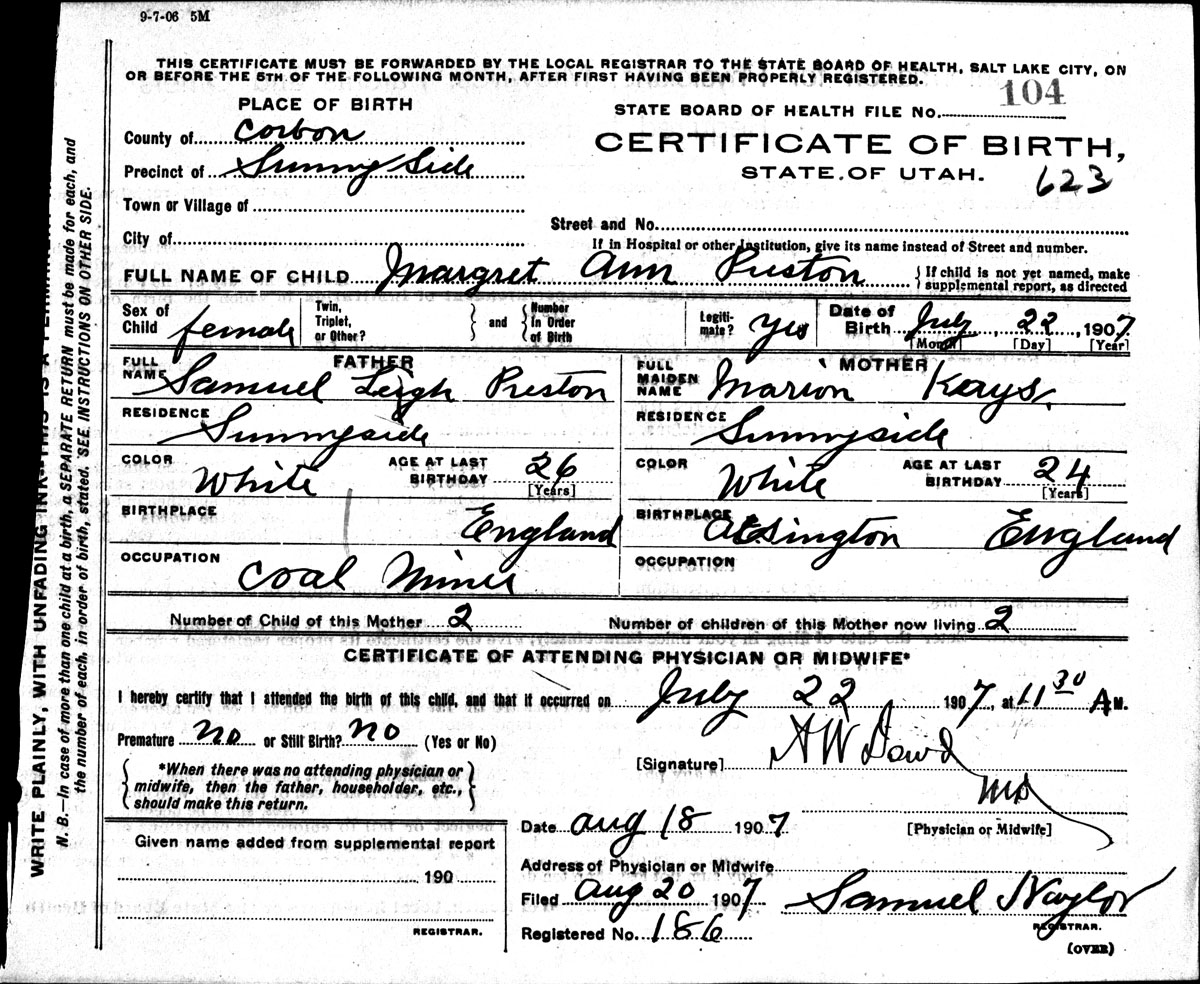 9-7-06 5M
THIS CERTIFICATE MUST BE FORWARDED BY THE LOCAL REGISTRAR TO THE STATE BOARD OF HEALTH, SALT LAKE CITY, ON
OR BEFORE THE 5TH OF THE FOLLOWING MONTH, AFTER FIRST HAVING BEEN PROPERLY REGISTERED.
PLACE OF BIRTH
STATE BOARD OF HEALTH FILE No. 104
County of Corbon
CERTIFICATE OF BIRTH,
Precinct of Sunny Side
STATE OF UTAH. 623
Town or Village of
Street and No.
City of
If in Hospital or other Institution, give its name instead of Street and number.
FULL NAME OF CHILD Margret Ann Preston
{If child is not yet named, make
supplemental report, as directed
Sex of Child female
Twin, Triplet, or Other? } and { Number in Order of Birth
Legiti-mate? yes
Date of Birth July, 22, 1907
[Month] [Day] [Year]
FATHER
FULL NAME Samuel Leigh Preston
MOTHER
FULL MAIDEN NAME Marion Kays.
RESIDENCE Sunnyside
RESIDENCE Sunnyside
COLOR White AGE AT LAST BIRTHDAY 26 [Years]
COLOR White AGE AT LAST BIRTHDAY 24 [Years]
BIRTHPLACE England
BIRTHPLACE England
OCCUPATION Coal Miner
OCCUPATION
Number of Child of this Mother 2
Number of children of this Mother now living 2
CERTIFICATE OF ATTENDING PHYSICIAN OR MIDWIFE*
I hereby certify that I attended the birth of this child, and that it occurred on July 22 1907, at 11 30 A M.
Premature no or Still Birth? no (Yes or No)
[Signature] A W Dowd
MD
{ *When there was no attending physician or
midwife, then the father, householder, etc.,
should make this return. }
Date Aug 18 1907
[Physician or Midwife]
Given name added from supplemental report
190
REGISTRAR.
Address of Physician or Midwife
Filed Aug 20 1907 Samuel Naylor
REGISTRAR.
Registered No. 186
(OVER)
WRITE PLAINLY, WITH UNFADING INK-THIS IS A PERMANENT
N. B.—In case of more than one child at a birth, a SEPARATE RETURN must be made for each, and
the number of each, in order of birth, stated. SEE INSTRUCTIONS ON OTHER SIDE.